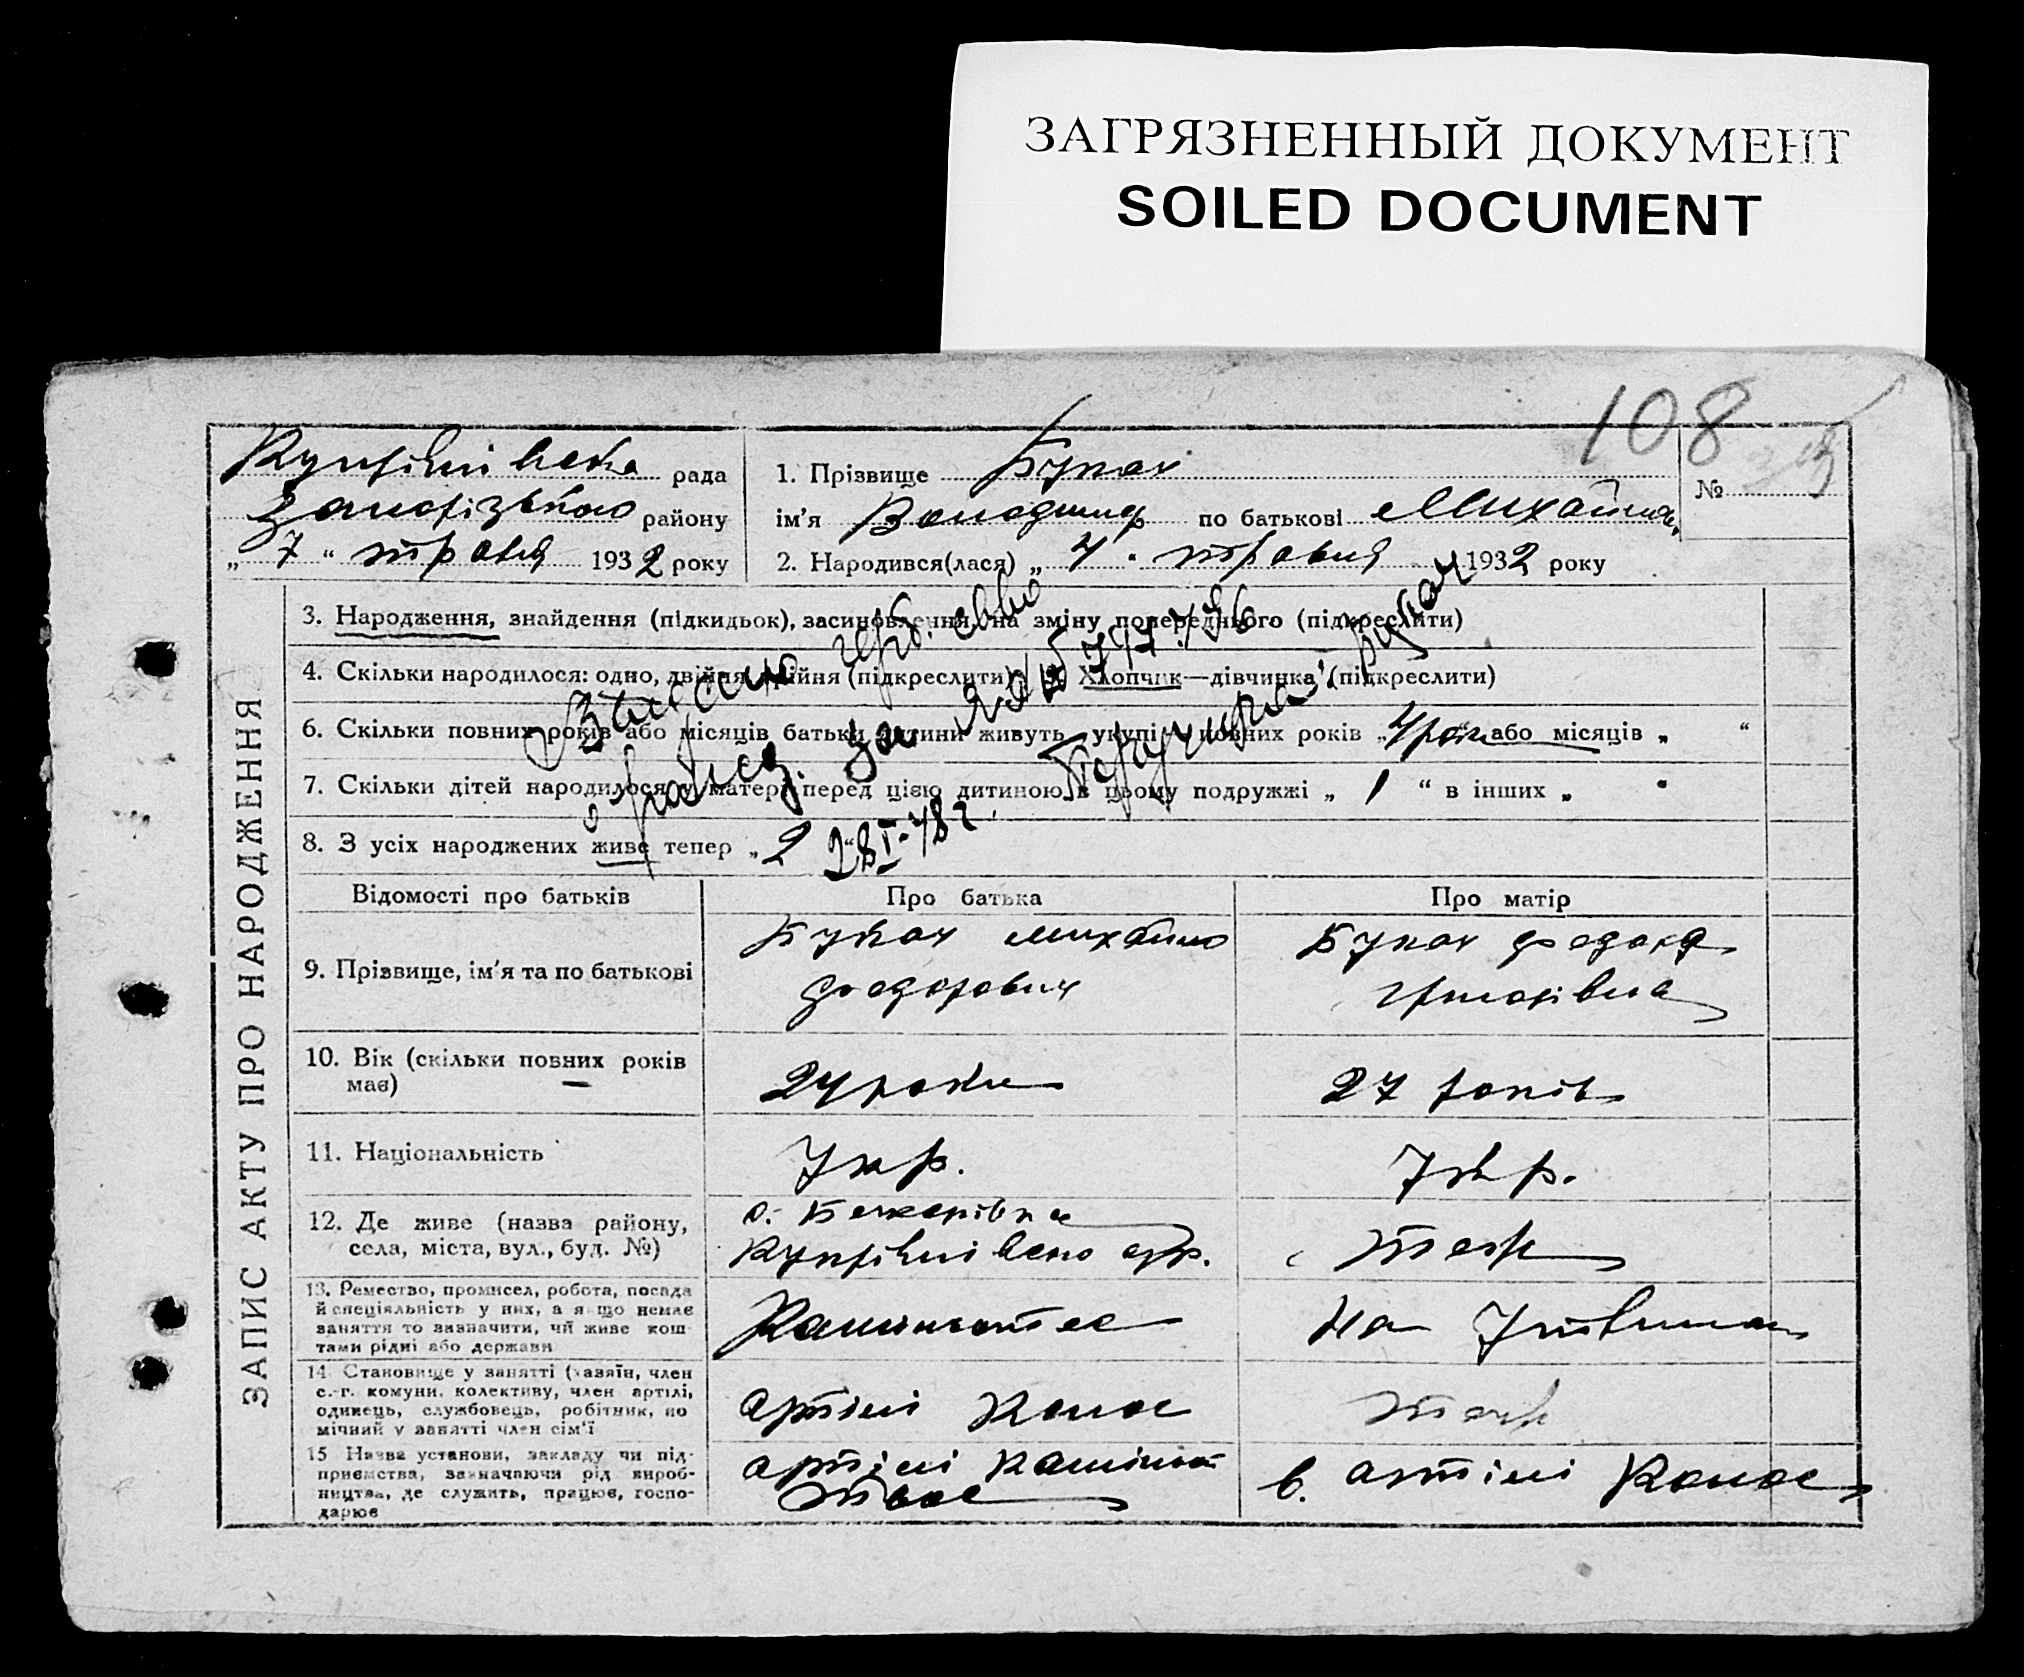 ЗАГРЯЗНЕННЫЙ ДОКУМЕНТ
SOILED DOCUMENT
108
рада
району
„ 7 “ травня 1932 року
1. Прізвище Букач
№
ім'я Володимир по батькові Михайлов.
2. Народився(лася) „ 4 “ травня 1932 року
ЗАПИС АКТУ ПРО НАРОДЖЕННЯ
3. Народження, знайдення (підкидьок), засиновлення, на зміну попереднього (підкреслити)
4. Скільки народилося: одно, двійня, трійня (підкреслити) Хлопчик—дівчинка (підкреслити)
6. Скільки повних років або місяців батьки дитини живуть укупі: повних років „ 4 роки “ або місяців „ “
7. Скільки дітей народилося у матері перед цією дитиною в цьому подружжі „ 1 “ в інших „ “
8. З усіх народжених живе тепер „ 2
28 I-48 г.
Відомості про батьків
Про батька
Про матір
9. Прізвище, ім'я та по батькові
Букач Михайло
Федорович
Букач Федора
Григорівна
10. Вік (скільки повних років
має)
24 роки
27 років
11. Національність
Укр.
Укр.
12. Де живе (назва району,
села, міста, вул., буд. №)
теж
13. Ремество, промисел, робота, посада
й спеціяльність у них, а якщо немає
заняття то зазначити, чи живе кош
тами рідні або держави
На Утриман
14 Становище у занятті (хазяїн, член
с.-г. комуни, колективу, член артілі,
одинець, службовець, робітник, по
мічний у занятті член сім'ї
артілі Колос
теж
15 Назва установи, закладу чи під-
приємства, зазначаючи рід вироб-
ництва, де служить, працює, госпо-
дарює
артілі
в. артілі Колос